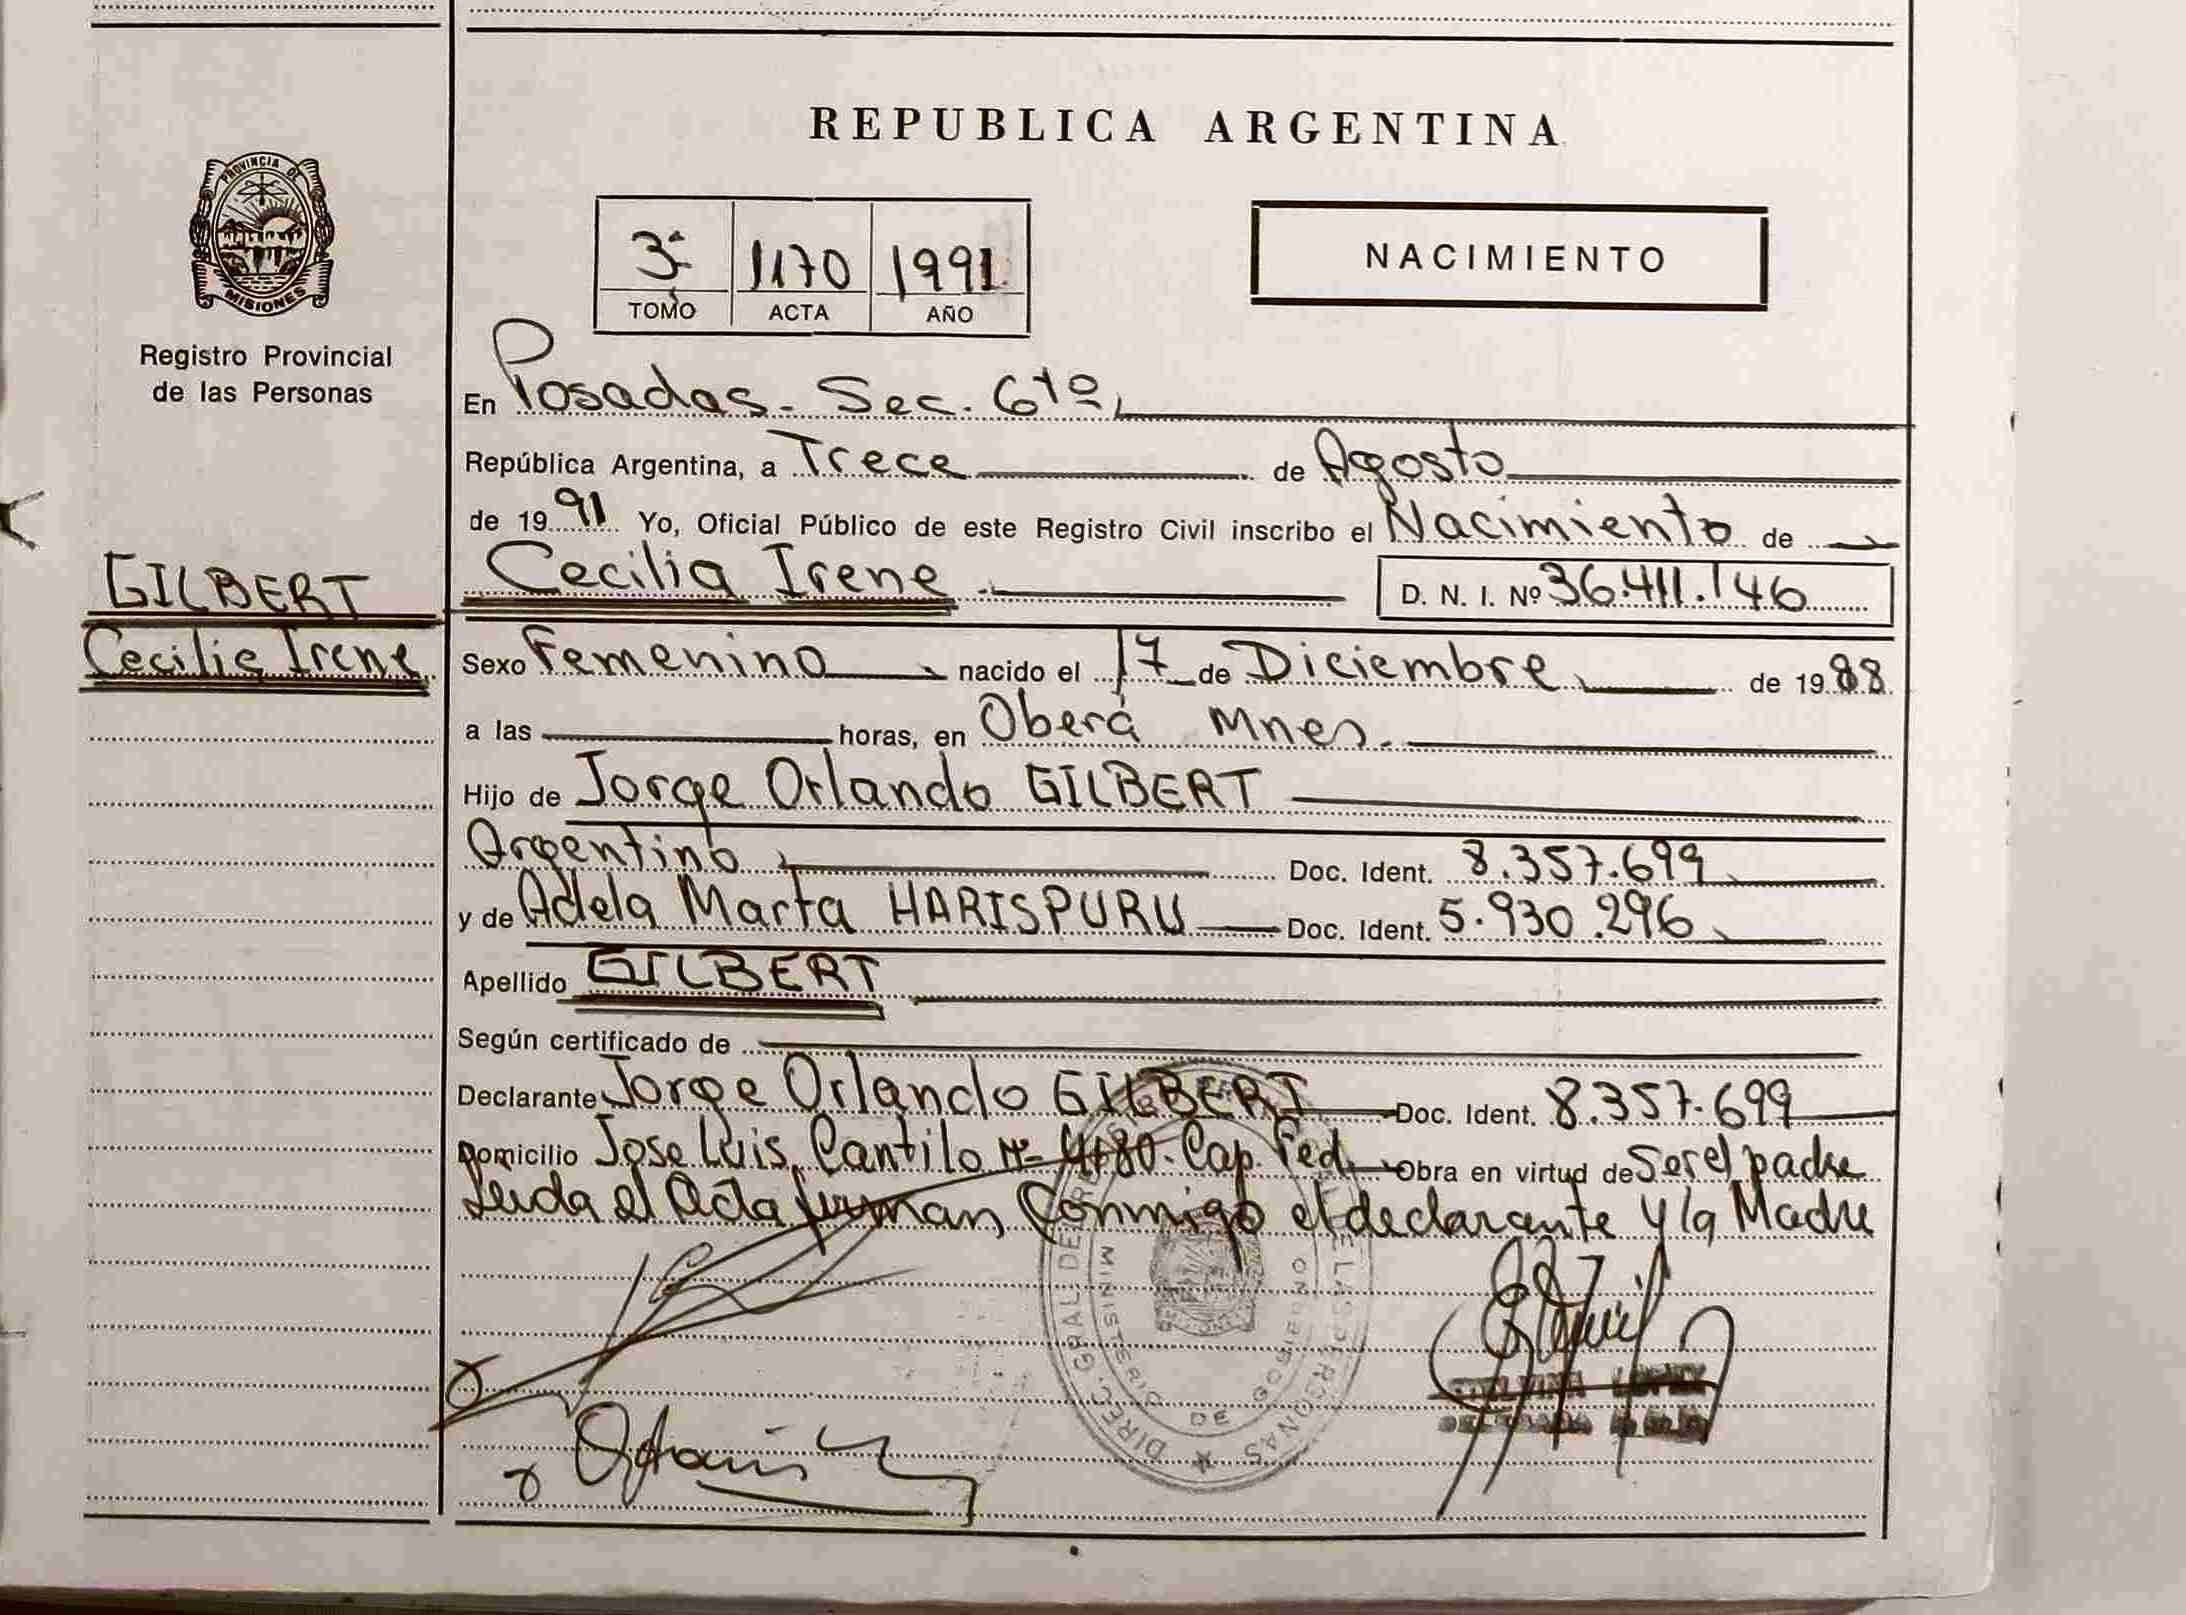 REPUBLICA ARGENTINA
PROVINCIA DE
MISIONES
Registro Provincial
de las Personas
3ª 1170 1991
TOMO ACTA AÑO
NACIMIENTO
En Posadas - Sec. 6ta
República Argentina, a Trece de Agosto
de 1991 Yo, Oficial Público de este Registro Civil inscribo el Nacimiento de
GILBERT
Cecilia Irene
Cecilia Irene D. N. I. Nº 36.411.146
Sexo Femenino nacido el 17 de Diciembre de 1988
a las horas, en Oberá Mnes.
Hijo de Jorge Orlando GILBERT
Argentino Doc. Ident. 8.357.699
y de Adela Marta HARISPURU Doc. Ident. 5.930.296
Apellido GILBERT
Según certificado de
Declarante Jorge Orlando GILBERT Doc. Ident. 8.357.699
Domicilio Jose Luis Cantilo Nº 4180 - Cap. Fed. Obra en virtud de Ser el padre
Leida el Acta firman Conmigo el declarante y la Madre
DIREC. GRAL. DE LAS PERSONAS
MINISTERIO DE GOBIERNO